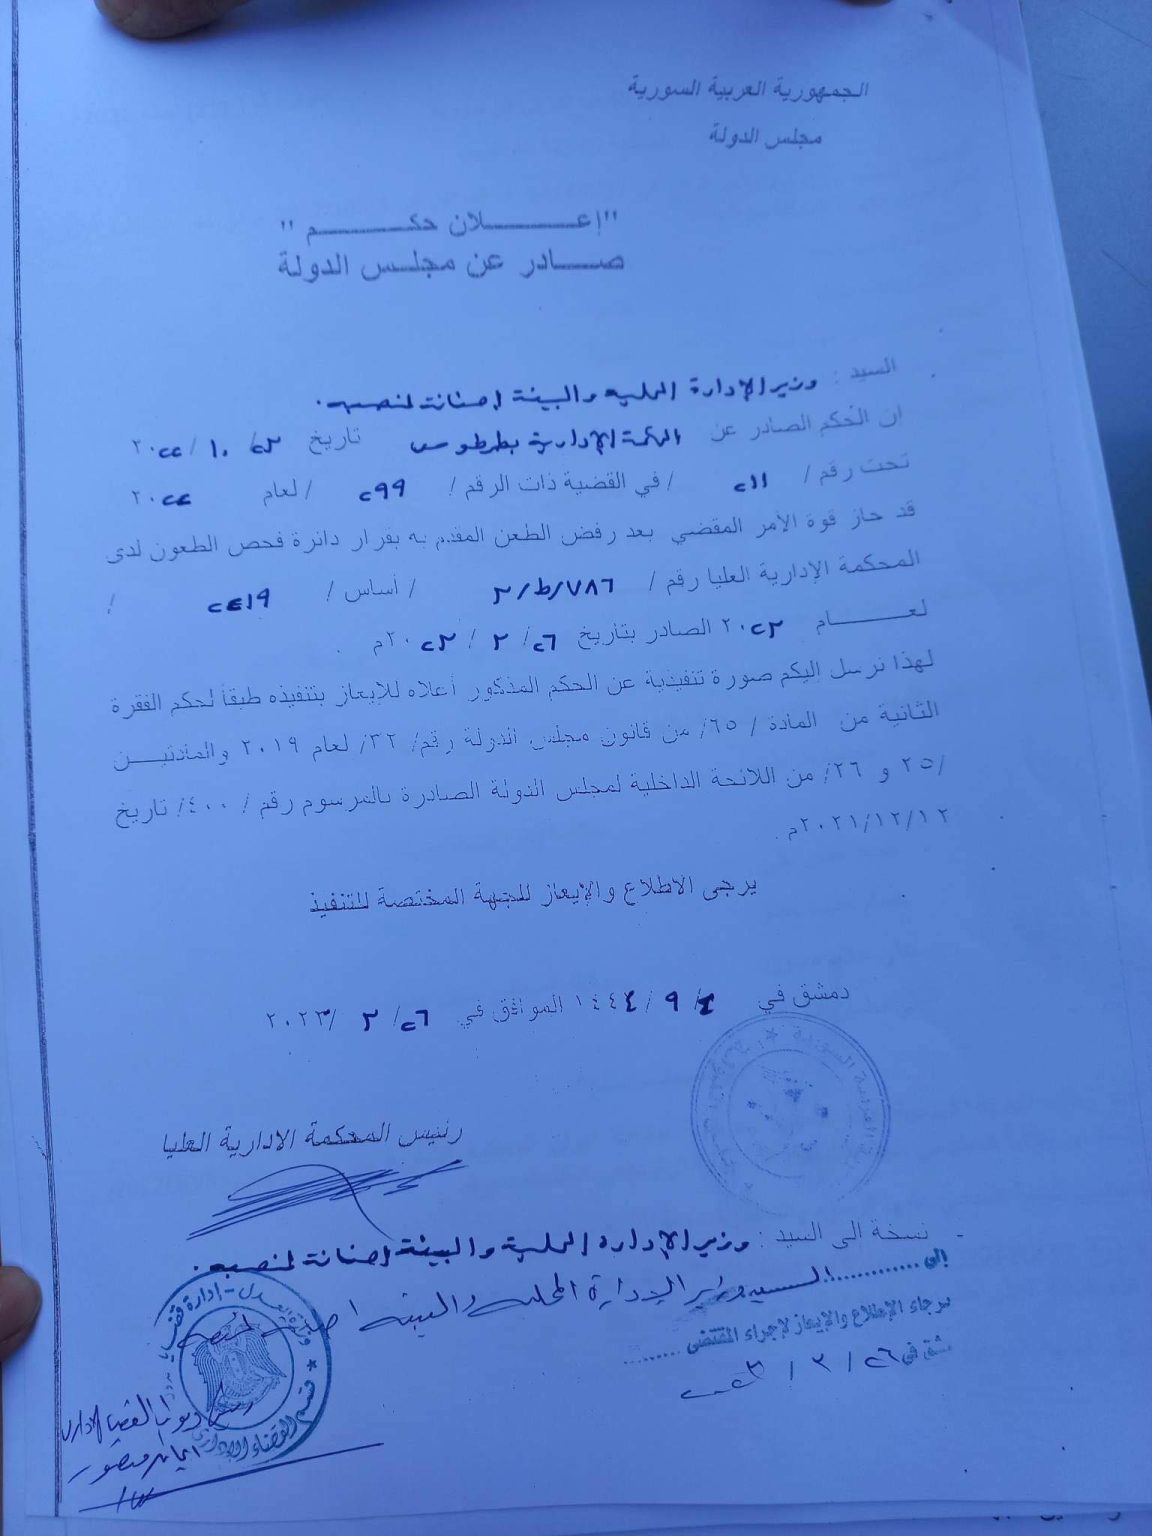 الجمهورية العربية السورية
مجلس الدولة
"إعـــــــلان حكـــــــــم "
صـــادر عن مجلـس الدولة
السيد : وزير الإدارة المحلية والبيئة إضافة لمنصبه .
ان الحكم الصادر عن المحكمة الإدارية بطرطوس تاريخ ٢٣/ ١٠ / ٢٠٢٢
تحت رقم / ٢١١ / في القضية ذات الرقم / ٢٩٩ / لعام ٢٠٢٢
قد حاز قوة الأمر المقضي بعد رفض الطعن المقدم به بقرار دائرة فحص الطعون لدى
المحكمة الإدارية العليا رقم / ٧٨٦/ط/٣ / أساس / ٢٤١٩ /
لعـــــــام ٢٠٢٣ الصادر بتاريخ ٢٦/ ٣ / ٢٠٢٣م .
لهذا نرسل إليكم صورة تنفيذية عن الحكم المذكور أعلاه للإيعاز بتنفيذه طبقاً لحكم الفقرة
الثانية من المادة / ٦٥/ من قانون مجلس الدولة رقم/ ٣٢/ لعام ٢٠١٩ والمادتيـــن
/٢٥ و ٢٦/ من اللائحة الداخلية لمجلس الدولة الصادرة بالمرسوم رقم / ٤٠٠/ تاريخ
٢٠٢١/١٢/١٢م .
يرجى الاطلاع والإيعاز للجهة المختصة للتنفيذ
دمشق في ٤/ ٩ / ١٤٤٤ الموافق في ٢٦/ ٣ /٢٠٢٣
رئيس المحكمة الادارية العليا
- نسخة الى السيد : وزير الإدارة المحلية والبيئة إضافة لمنصبه .
إلى ............ السيد وزير الإدارة المحلية والبيئة اضافة لمنصبه
برجاء الإطلاع والإيعاز لإجراء المقتضى ..........
مشق في ٢٦ / ٣ / ٢٠٢٣
وزارة العدل - إدارة قضايا
قسم القضاء الإداري
رئيس ديوان القضايا الإداري
منصور